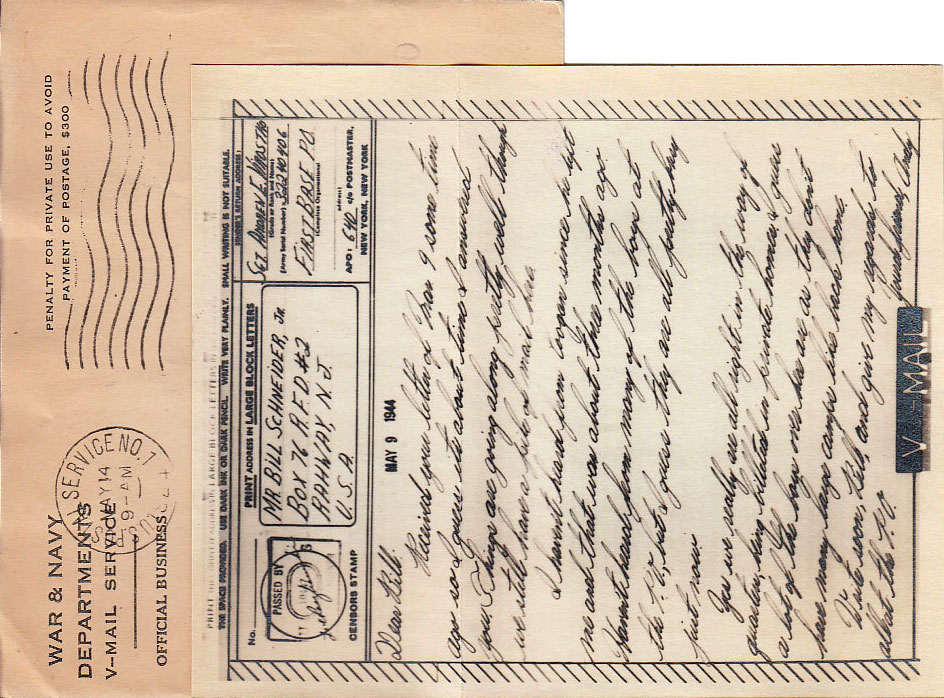 WAR & NAVY
DEPARTMENTS
V-MAIL SERVICE
OFFICIAL BUSINESS
PENALTY FOR PRIVATE USE TO AVOID
PAYMENT OF POSTAGE, $300
SERVICE NO. 1
MAY 14
9-AM
THE SPACE PROVIDED. USE DARK INK OR DARK PENCIL. WRITE VERY PLAINLY. SMALL WRITING IS NOT SUITABLE.
No.
PASSED BY
CENSORS STAMP
PRINT ADDRESS IN LARGE BLOCK LETTERS
MR BILL SCHNEIDER, JR
BOX 76 R.F.D #2
RAHWAY, N. J.
U. S. A.
SENDER'S RETURN ADDRESS:
SGT. ANDREW E.
(Grade or Rank and Name)
32240406
(Army Serial Number)
FIRST BASE P.O.
(Complete Organization)
address:
APO: 640 c/o POSTMASTER,
NEW YORK, NEW YORK
MAY 9 1944
Dear Bill:
Received your letter of Mar 9 some time
ago so I guess its about time I answered
you. Things are going along pretty well though
we still have a pile of mail here.
I havent heard from since he left
me and that was about three months ago.
Havent heard from many of the boys at
the P.O, but I guess they are all pretty busy
just now.
You see really are all right in the way of
quarters, being billeted in private homes. I guess
a lot of the boys over here see as they dont
have many large camps like back home.
Write soon, Bill, and give my regards to
all at the P.O.
Your friend, Andy
V-MAIL